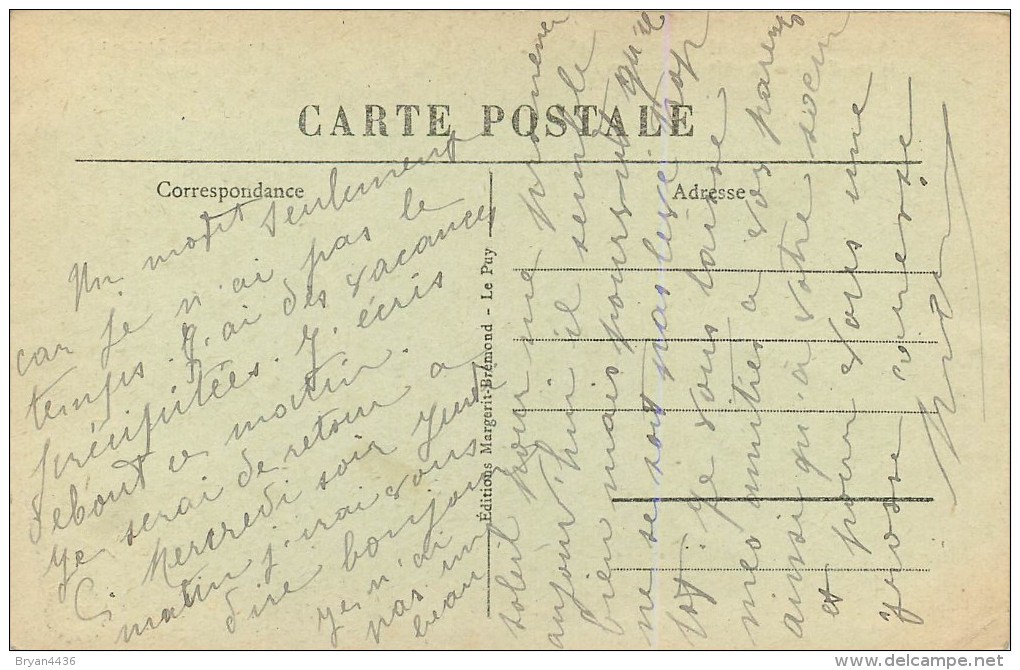 CARTE POSTALE
Correspondance
Adresse
Éditions Margerit-Brémond - Le Puy
Un mot seulement
car je n'ai pas le
temps. J'ai des vacances
précipitées. J'écris
debout ce matin.
Je serai de retour a
Mercredi soir Jeudi
matin j'irai vous
dire bonjour
Je n'ai
pas un
beau
soleil pour me promener
aujourd'hui il semble
bien mais pourvu qu'il
ne se soit pas levé trop
tot. Je vous laisse
mes amitiés a vos parents
ainsi qu'à votre soeur
et pour vous une
grosse caresse
Bryan4436
delcampe.net